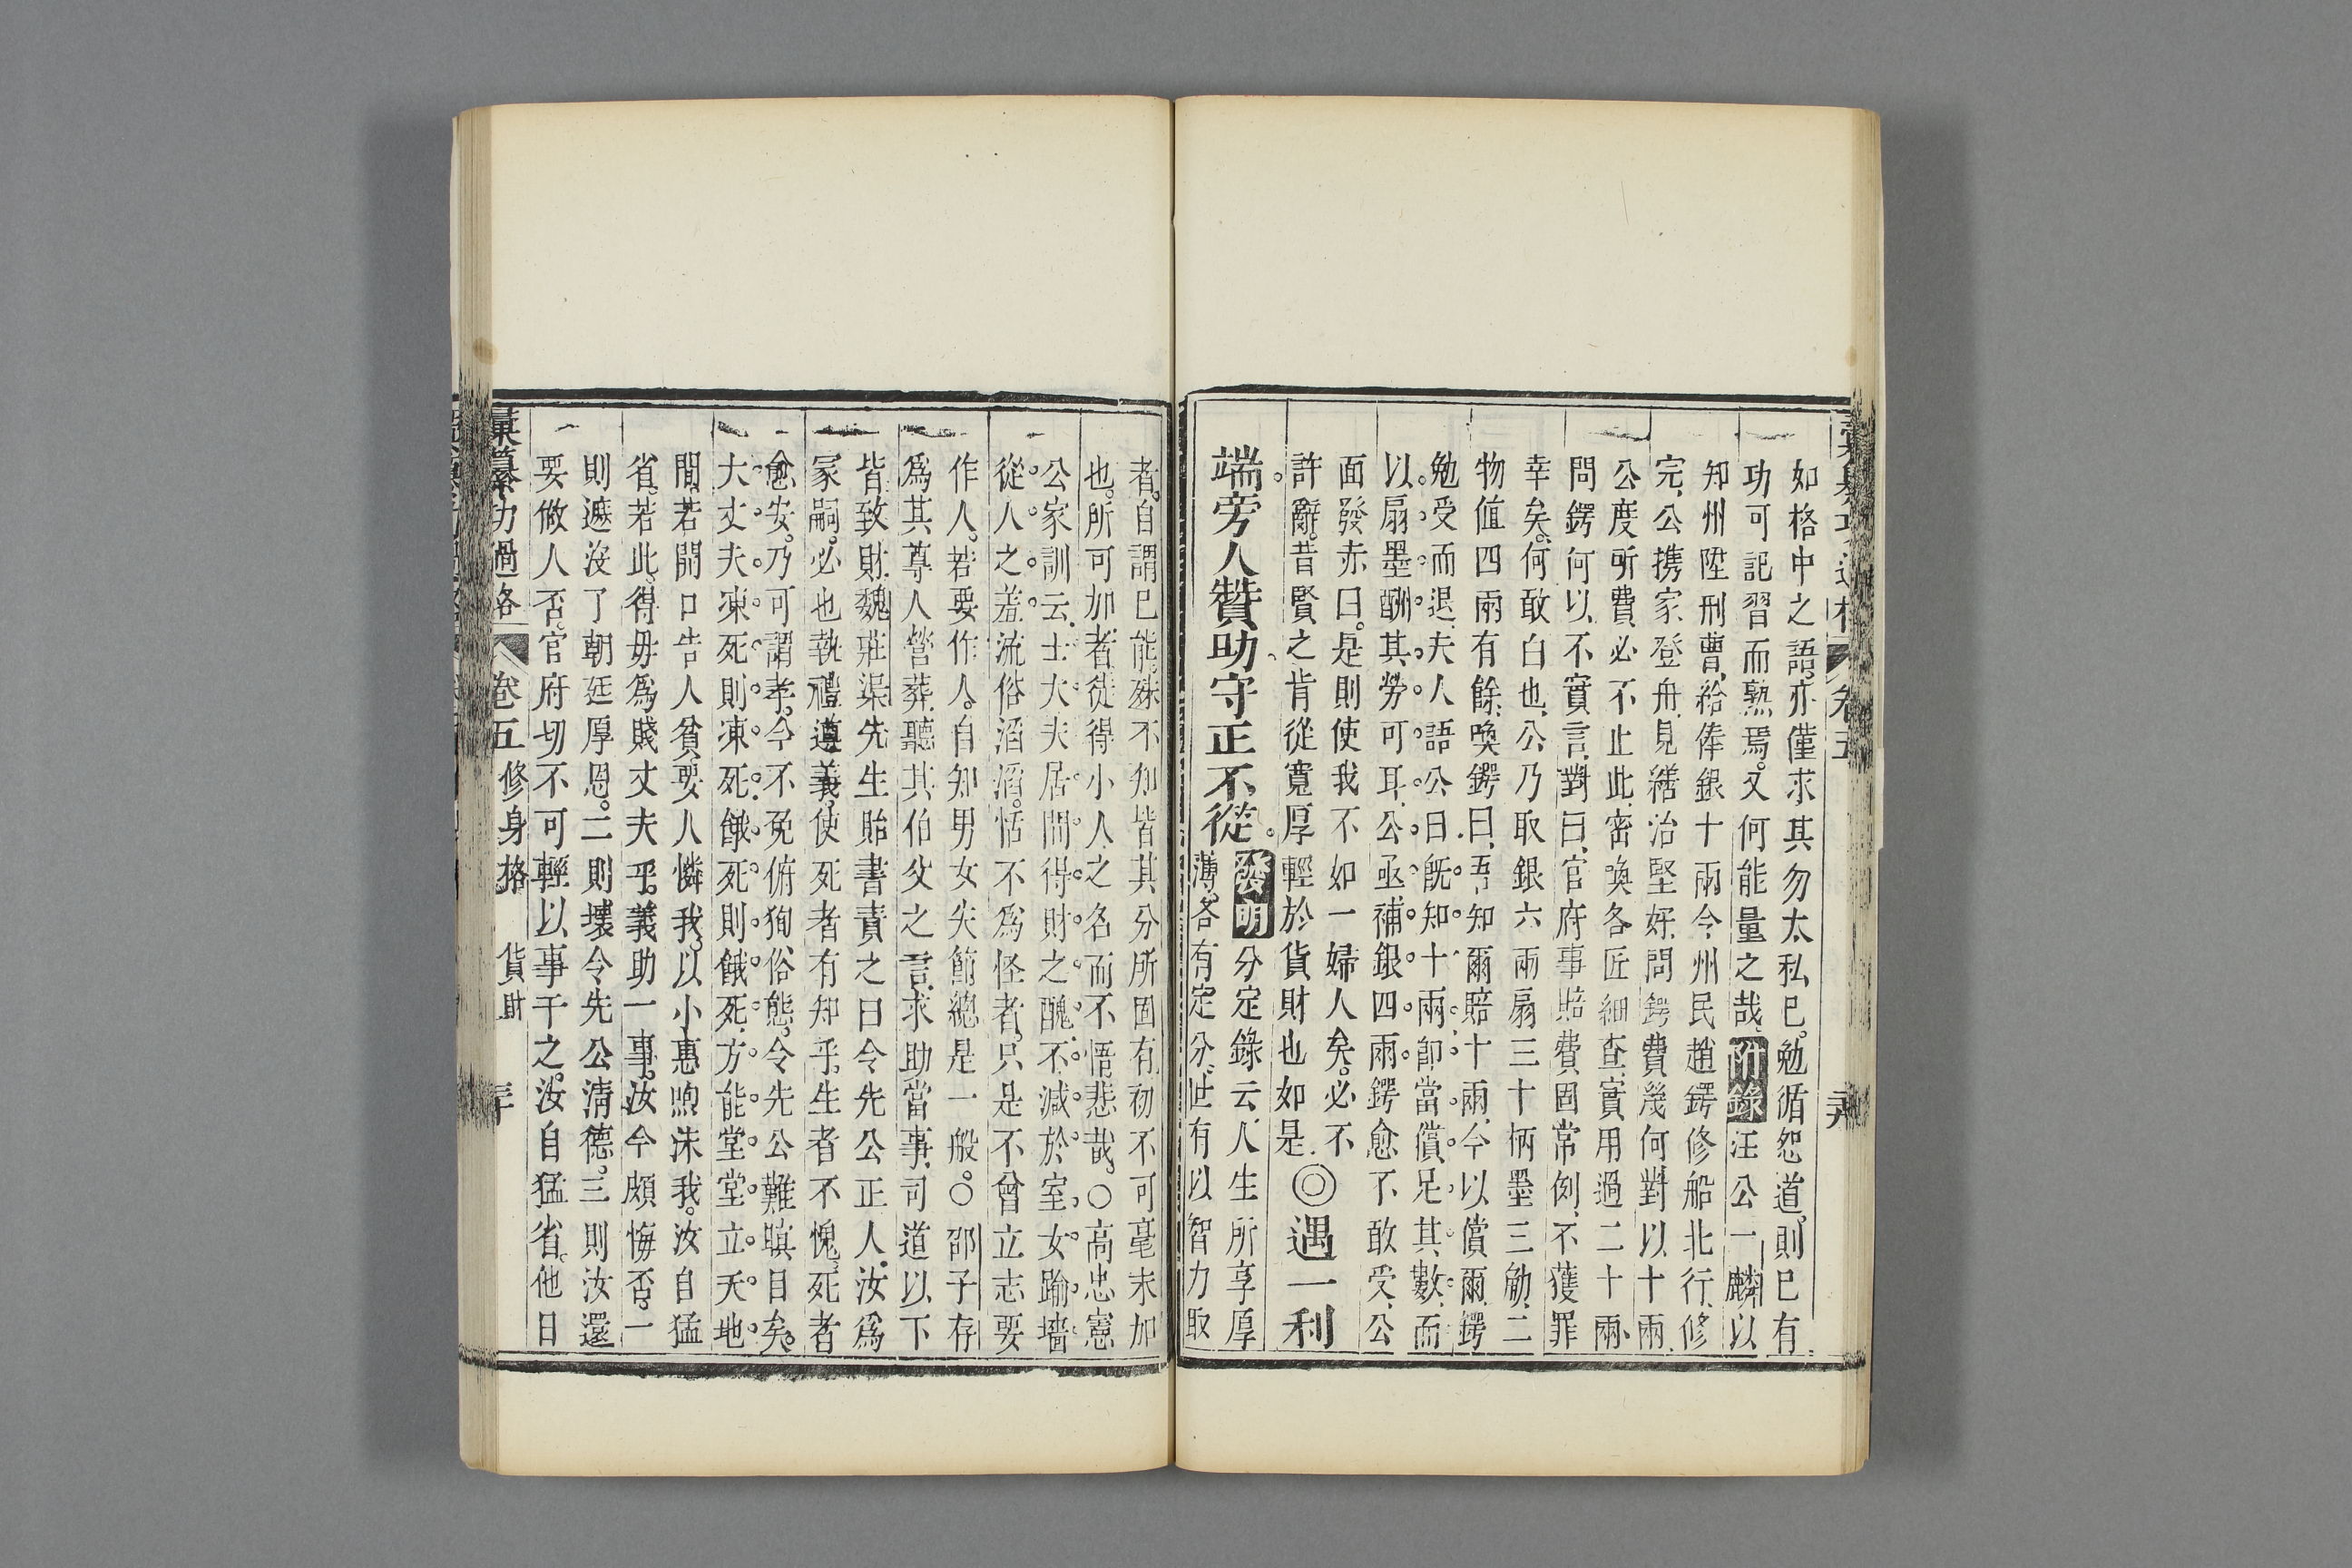 如格中之語亦僅求其勿太私已勉循怨道則已有
功可記習而熟焉又何能量之哉附錄汪公一麟以
知州陞刑曹給俸銀十兩令州民趙鍔修船北行修
完公攜家登舟見繕治堅好問鍔費幾何對以十兩
公度所費必不止此密喚各匠細查實用過二十兩
問鍔何以不實言對曰官府事賠費固常例不獲罪
幸矣何敢白也公乃取銀六兩扇三十柄墨三觔二
物値四兩有餘喚鍔曰吾知爾賠十兩今以償爾鍔
勉受而退夫人語公曰旣知十兩卽當償足其數而
以扇墨酬其勞可耳公亟補銀四兩鍔愈不敢受公
面發赤曰是則使我不如一婦人矣必不
許辭昔賢之肯從寬厚輕於貨財也如是◎遇一利
端旁人贊助守正不從發明分定錄云人生所享厚
薄各有定分世有以智力取
彙纂功過格 卷五
者自謂已能殊不知皆其分所固有初不可毫末加
也所可加者徒得小人之名而不悟悲哉○高忠憲
公家訓云士大夫居間得財之醜不減於室女踰墻
從人之羞流俗滔滔恬不爲怪者只是不曾立志要
作人若要作人自知男女失節總是一般○邵子存
爲其尊人營葬聽其伯父之言求助當事司道以下
皆致財魏莊渠先生貽書責之曰令先公正人汝爲
冢嗣必也執禮遵義使死者有知乎生者不愧死者
愈安乃可謂孝今不免俯狥俗態令先公難瞑目矣
大丈夫凍死則凍死餓死則餓死方能堂堂立天地
間若開口告人貧要人憐我以小惠煦沫我汝自猛
省若此得毋爲賤丈夫乎義助一事汝今頗悔否一
則遮沒了朝廷厚恩二則壞令先公淸德三則汝還
要做人否官府切不可輕以事干之汝自猛省他日
彙纂功過格 卷五 修身格 貨財 三十